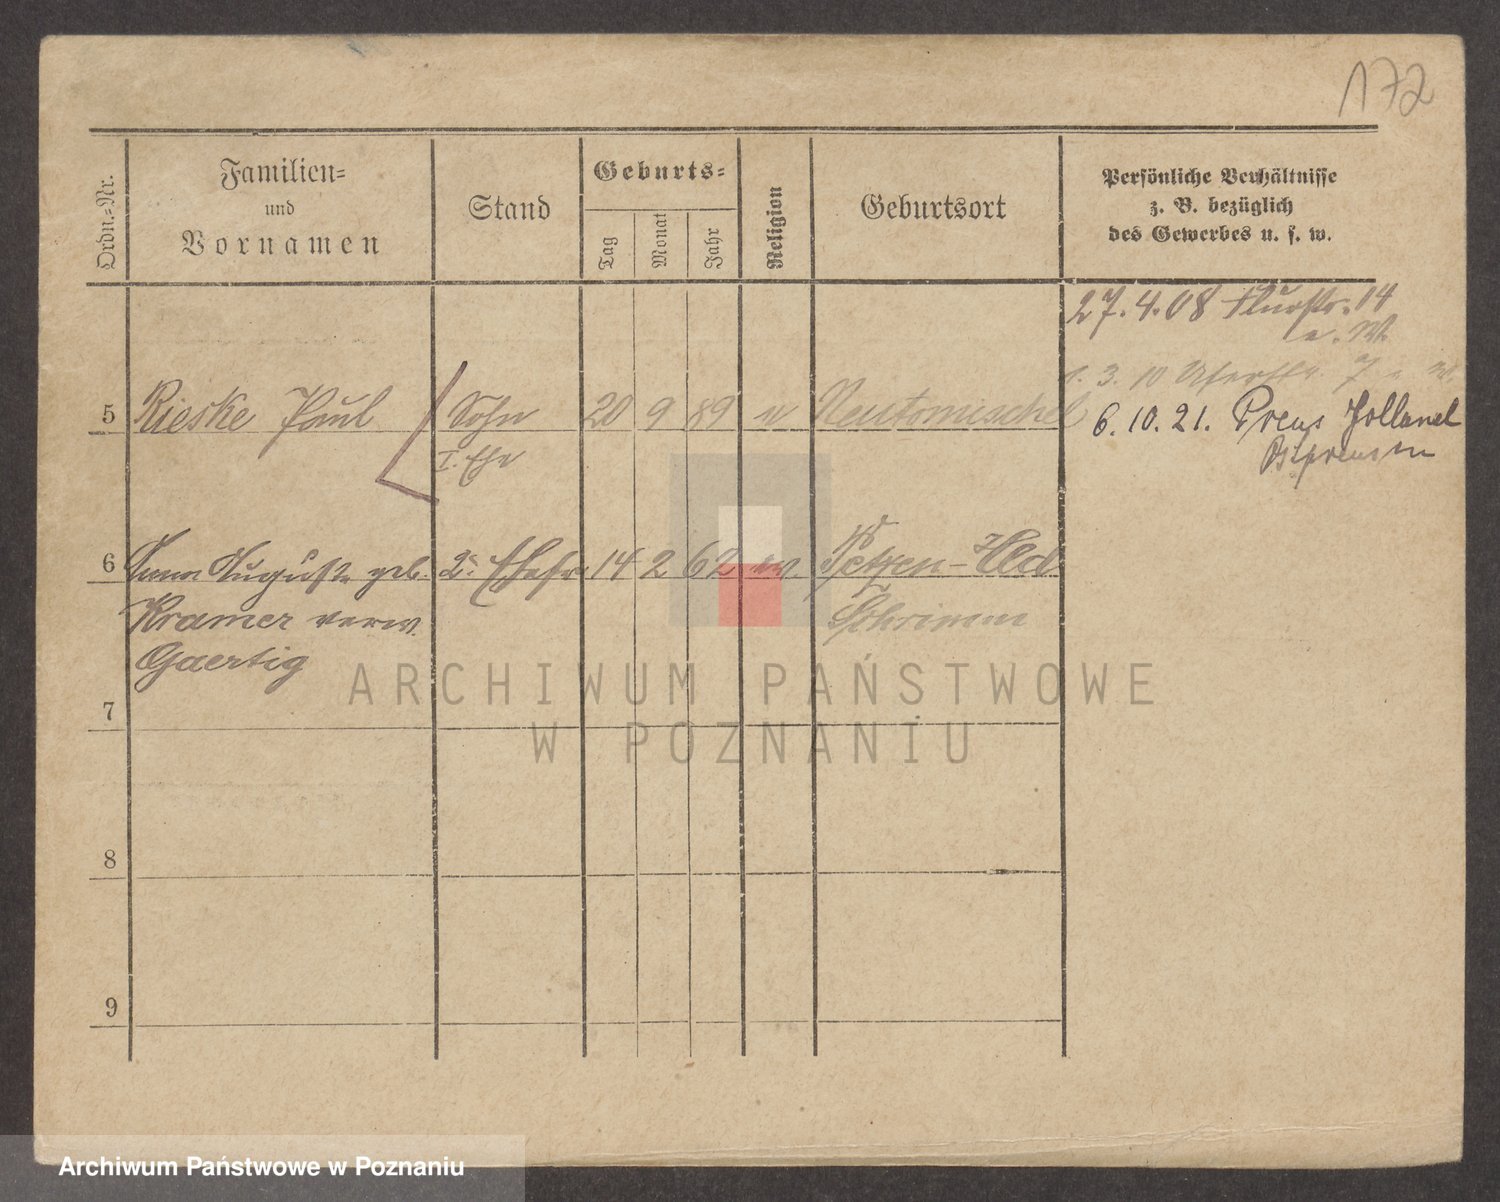 172
Ordn.-Nr.
Familien-
und
Vornamen
Stand
Geburts-
Tag
Monat
Jahr
Religion
Geburtsort
Persönliche Verhältnisse
z. B. bezüglich
des Gewerbes u. s. w.
27.4.08 Flurstr. 14
1. 3. 10 Uferstr. 7
5 Rieske Paul Sohn 20 9 89 Neutomischel 6.10.21. Preus Holland
I. Ehe Ostpreussen
6 Anna Auguste geb. 2. Ehefr 14 2 62 ev.
Kramer verw. Schrimm
Gaertig
ARCHIWUM PAŃSTWOWE
W POZNANIU
7
8
9
Archiwum Państwowe w Poznaniu